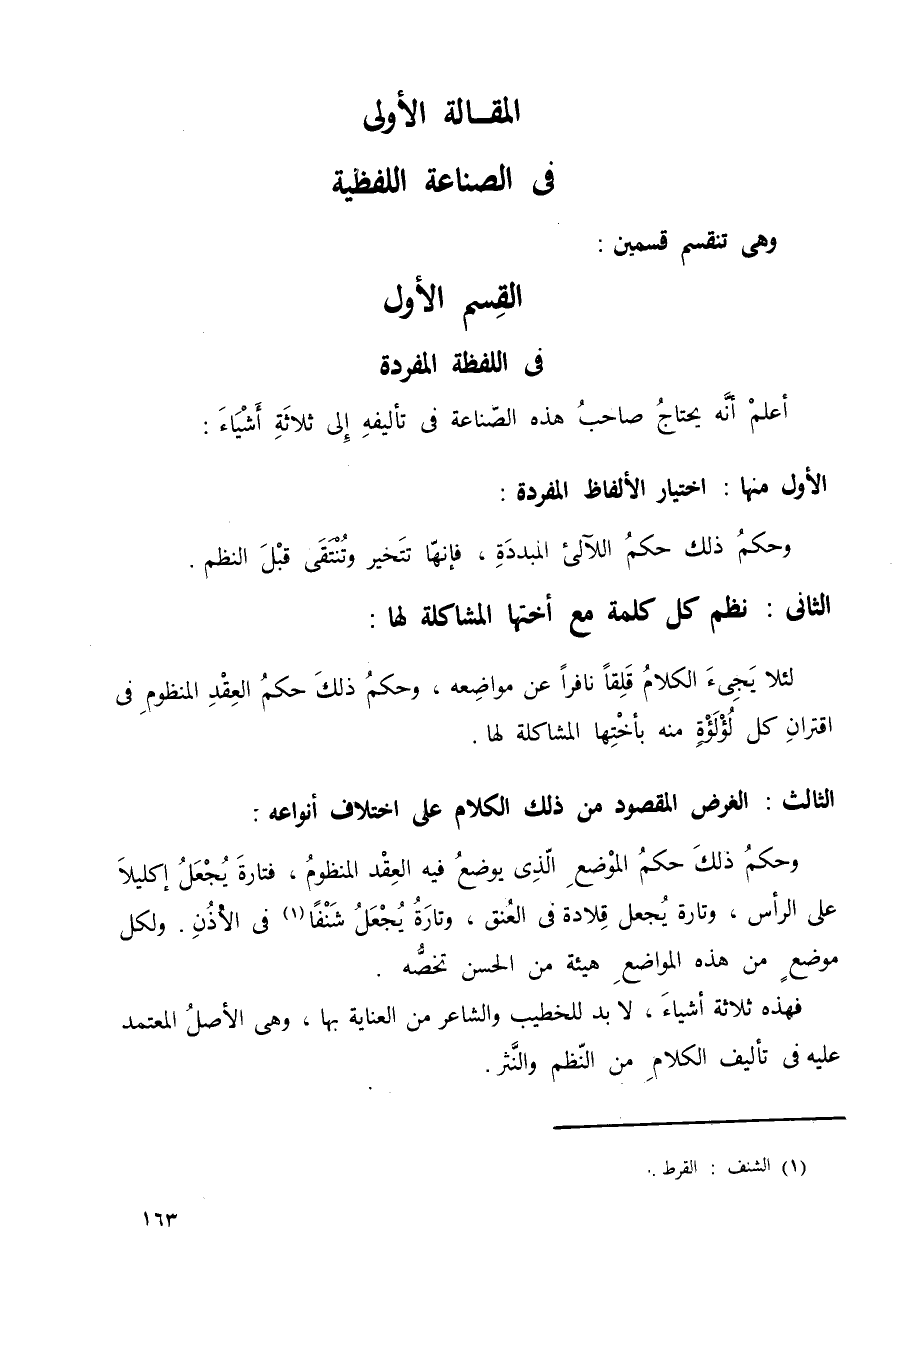 المقـالة الأولى
فى الصناعة اللفظية
وهى تنقسم قسمين :
القِسم الأول
فى اللفظة المفردة
أعلمْ أنَّه يحتاجُ صاحبُ هذه الصّناعة فى تأليفهِ إلى ثلاثَةِ أَشْيَاءَ :
الأول منها : اختيار الألفاظ المفردة :
وحكمُ ذلك حكمُ اللآلئ المبددَةِ ، فإنهّا تتَخير وتُنْتَقَى قبْلَ النظم .
الثانى : نظم كل كلمة مع أختها المشاكلة لها :
لئلا يَجِىءَ الكلامُ قَلِقاً نافراً عن مواضِعه ، وحكمُ ذلكَ حكمُ العِقْدِ المنظومِ فى
اقترانِ كل لُؤْلَؤْةٍ منه بأخْتِها المشاكلة لها .
الثالث : الغرض المقصود من ذلك الكلام على اختلاف أنواعه :
وحكمُ ذلكَ حكمُ الموْضعِ الّذِى يوضعُ فيه العِقْد المنظومُ ، فتارةَ يُجْعَلُ إكليلاَ
على الرأس ، وتارة يُجعل قِلادة فى العُنق ، وتارَةُ يُجْعَلُ شَنْفًا (١) فى الأذُنِ . ولكل
موضعٍ من هذه المواضعِ هيئة من الحسن تخصُّه .
فهذه ثلاثة أشياءَ ، لا بد للخطيب والشاعر من العناية بها ، وهى الأصلُ المعتمد
عليه فى تأليف الكلامِ من النّظم والنَّثر .
(١) الشنف : القرط .
١٦٣